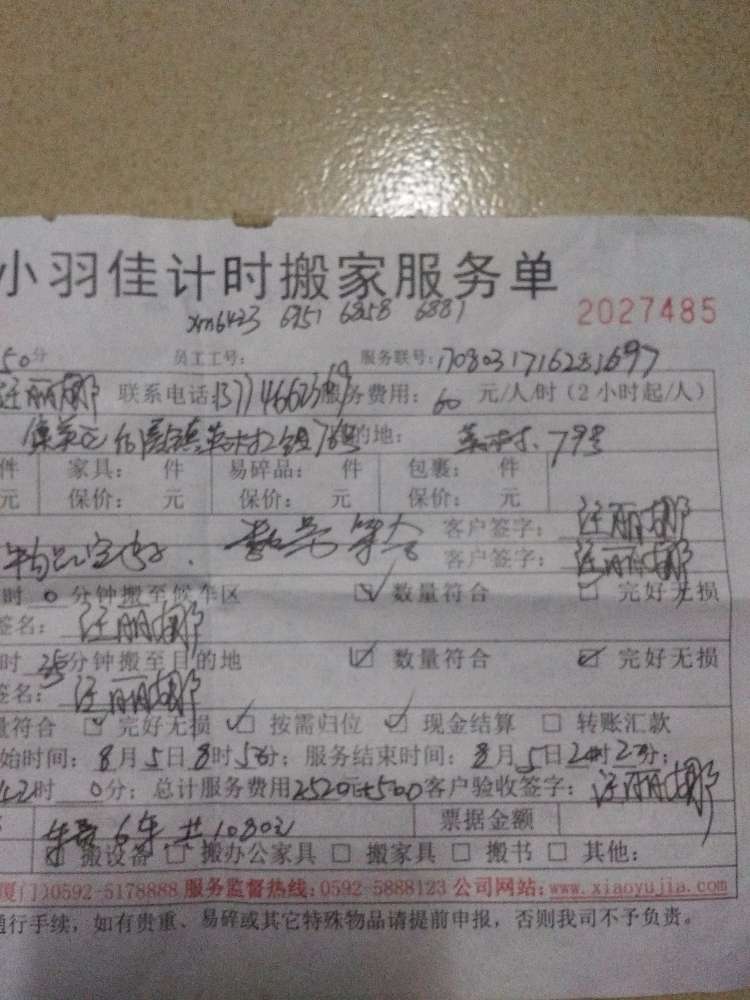 小羽佳计时搬家服务单
xm6423 6951 6858 6881
2027485
50分 员工工号: 服务联号:1708031716281697
汪丽娜 联系电话: 服务费用: 60 元/人/时(2小时起/人)
的地: 79号
件 家具: 件 易碎品: 件 包裹: 件
元 保价: 元 保价: 元 保价: 元
物品完好. 数量符合 客户签字: 汪丽娜
客户签字: 汪丽娜
时 0 分钟搬至候车区 ☑ 数量符合 □ 完好无损
签名: 汪丽娜
时 25 分钟搬至目的地 ☑ 数量符合 ☑ 完好无损
签名: 汪丽娜
量符合 ☑ 完好无损 ☑ 按需归位 ☑ 现金结算 □ 转账汇款
始时间: 8月5日8时50分; 服务结束时间: 8月5日 时 分;
42时 0分; 总计服务费用2520元+500 客户验收签字: 汪丽娜
车费6车共1080元 票据金额
□ 搬设备 □ 搬办公家具 □ 搬家具 □ 搬书 □ 其他:
厦门)0592-5178888 服务监督热线:0592-5888123 公司网站:www.xiaoyujia.com
通行手续,如有贵重、易碎或其它特殊物品请提前申报,否则我司不予负责。